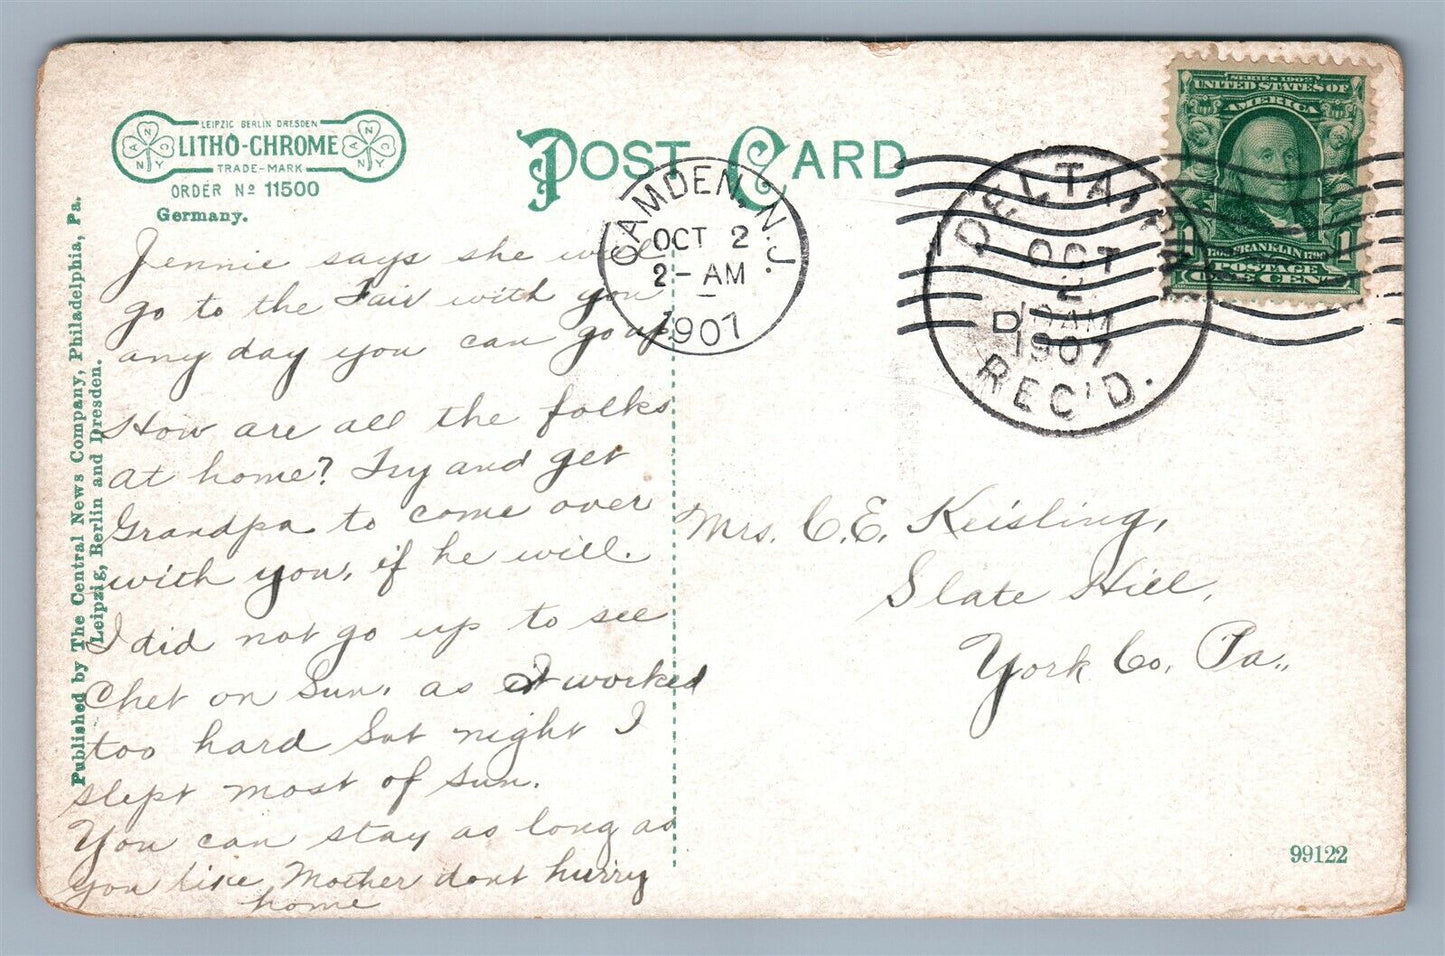 LEIPZIG BERLIN DRESDEN
LITHO-CHROME
TRADE-MARK
ORDER No 11500
Germany.
POST CARD
CAMDEN, N.J.
OCT 2
2- AM
1907
DELTA, PA.
OCT
2
10 AM
1907
REC'D.
SERIES 1902
UNITED STATES OF
AMERICA
FRANKLIN
POSTAGE
ONE CENT
Published by The Central News Company, Philadelphia, Pa.
Leipzig, Berlin and Dresden.
Jennie says she will
go to the Fair with you
any day you can go up
How are all the folks
at home? Try and get
Grandpa to come over
with you, if he will.
I did not go up to see
Chet on Sun. as I worked
too hard Sat night I
slept most of Sun.
You can stay as long as
you like Mother dont hurry
home
Mrs. C. E. Keisling,
Slate Hill,
York Co. Pa.,
99122